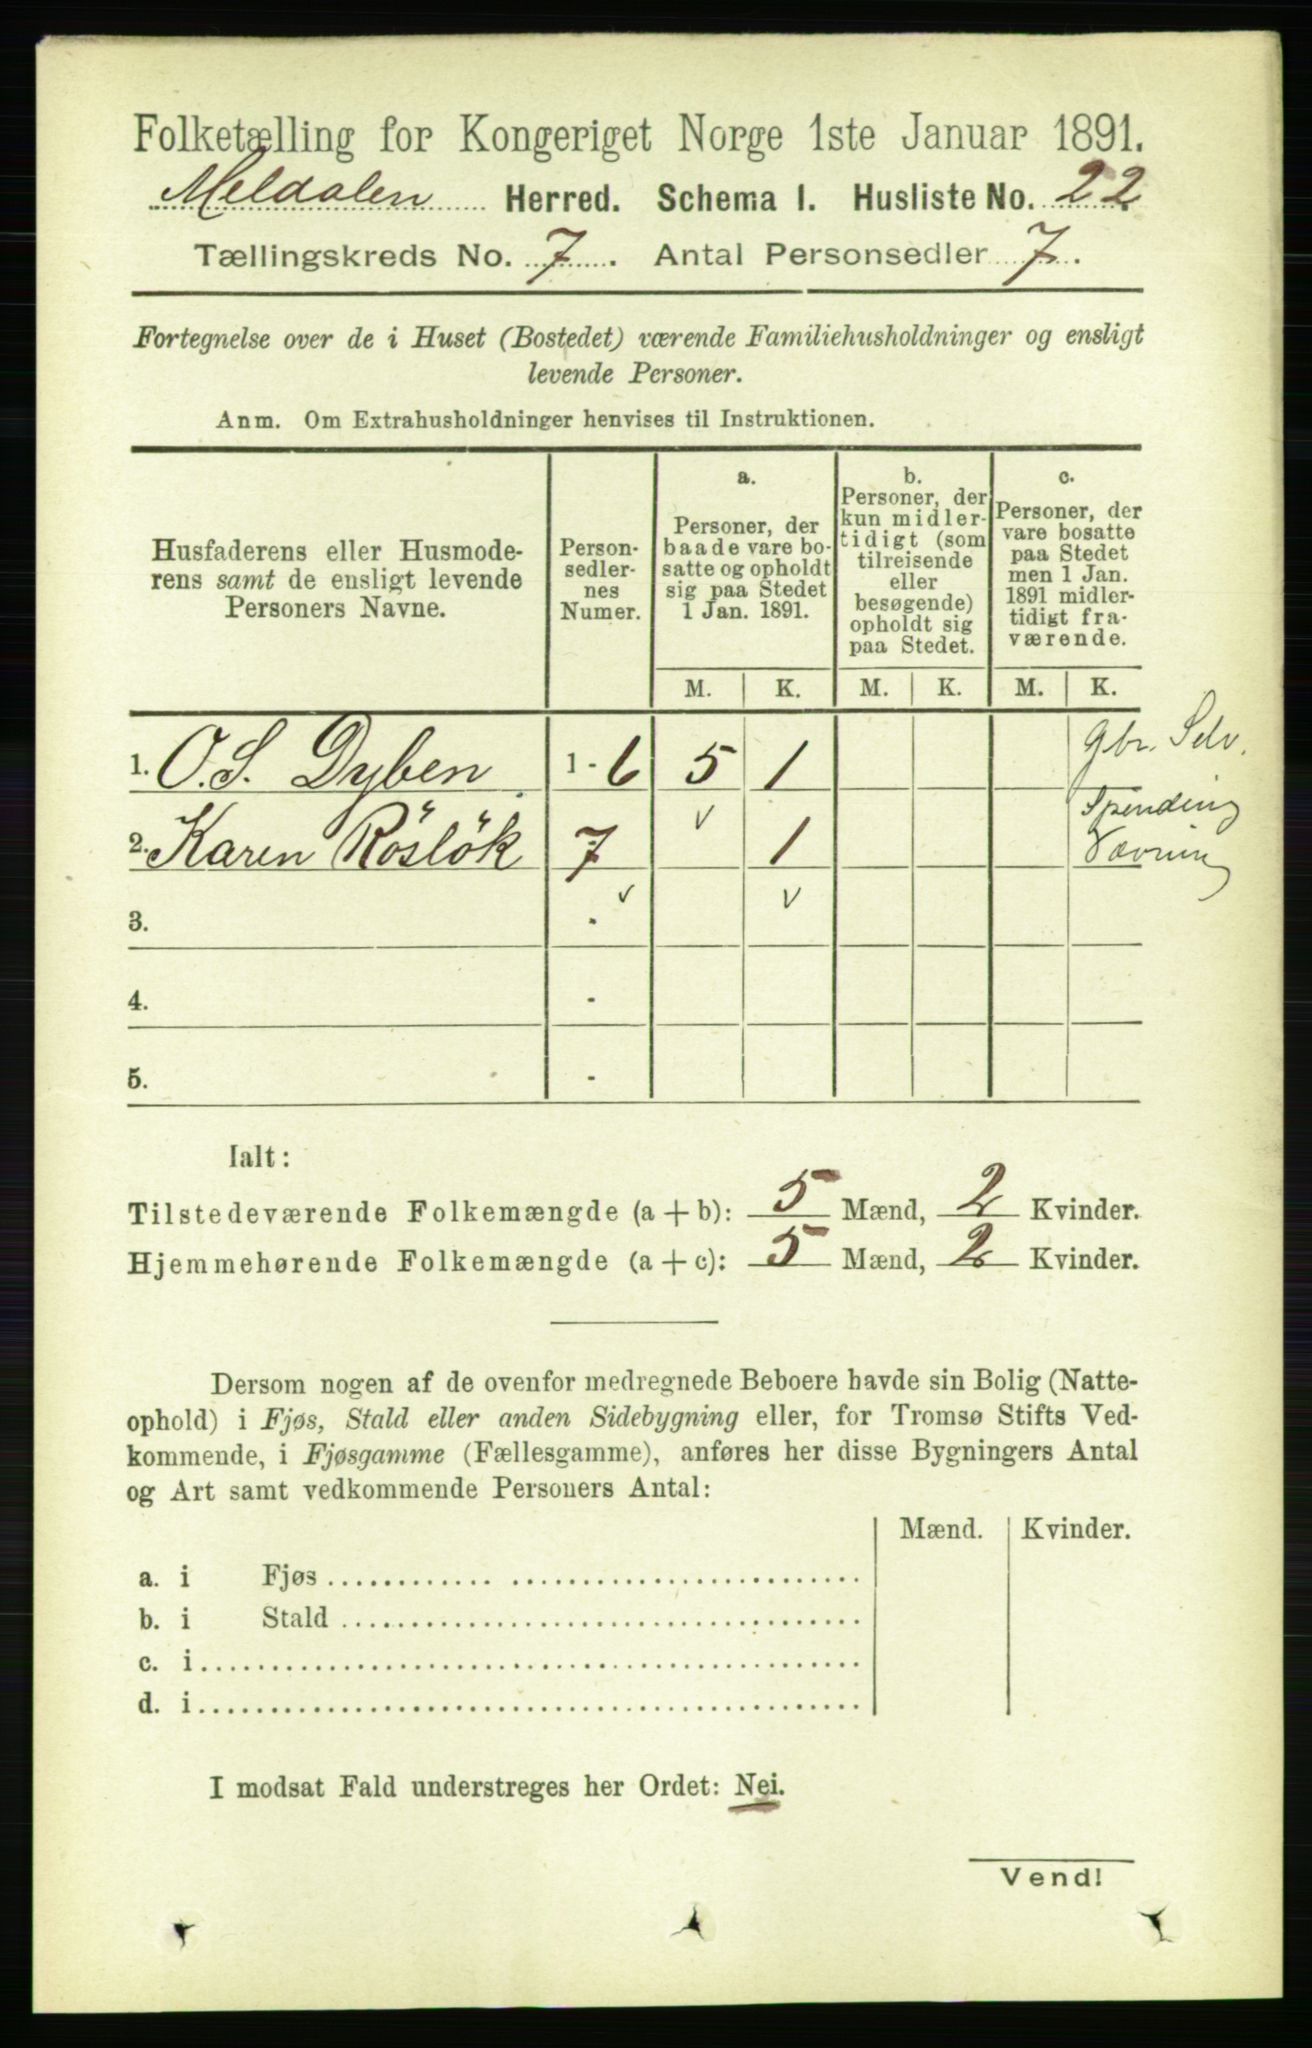 Folketælling for Kongeriget Norge 1ste Januar 1891.
Meldalen Herred. Schema I. Husliste No. 22
Tællingskreds No. 7. Antal Personsedler 7.
Fortegnelse over de i Huset (Bostedet) værende Familiehusholdninger og ensligt
levende Personer.
Anm. Om Extrahusholdninger henvises til Instruktionen.
Husfaderens eller Husmode-
rens samt de ensligt levende
Personers Navne.
Person-
sedler-
nes
Numer.
a.
Personer, der
baade vare bo-
satte og opholdt
sig paa Stedet
1 Jan. 1891.
b.
Personer, der
kun midler-
tidigt (som
tilreisende
eller
besøgende)
opholdt sig
paa Stedet.
c.
Personer, der
vare bosatte
paa Stedet
men 1 Jan.
1891 midler-
tidigt fra-
værende.
M. K. M. K. M. K.
1. O. S. Dyben 1 - 6 5 1 Gbr. Selv.
2. Karen Röslök 7 v 1 Spinding
v v
3. -
4. -
5. -
Ialt:
Tilstedeværende Folkemængde (a + b): 5 Mænd, 2 Kvinder.
Hjemmehørende Folkemængde (a + c): 5 Mænd, 2 Kvinder.
Dersom nogen af de ovenfor medregnede Beboere havde sin Bolig (Natte-
ophold) i Fjøs, Stald eller anden Sidebygning eller, for Tromsø Stifts Ved-
kommende, i Fjøsgamme (Fællesgamme), anføres her disse Bygningers Antal
og Art samt vedkommende Personers Antal:
Mænd. Kvinder.
a. i Fjøs
b. i Stald
c. i
d. i
I modsat Fald understreges her Ordet: Nei.
Vend!